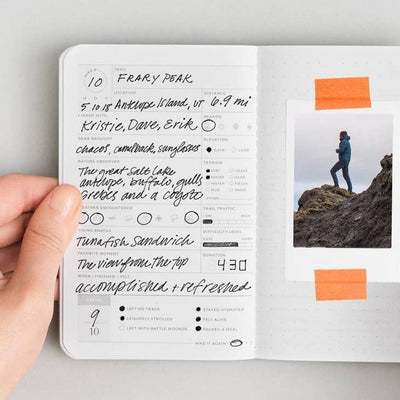 HIKE #
10
TRAIL
FRARY PEAK
LOCATION
DISTANCE
5 10 18 Antelope Island, UT 6.9 mi
I HIKED WITH
SEASON
Kristie, Dave, Erik
GEAR BROUGHT
ELEVATION
chacos, camelback, sunglasses
GAIN LOSS
NATURE OBSERVED
TERRAIN
The great Salt Lake
antelope, buffalo, gulls
Grebes and a coyote
DIRT GRASS
ROCKS SAND
WEATHER ENCOUNTERED
TRAIL TRAFFIC
HIKING SNACKS
DIFFICULTY LEVEL
Tunafish Sandwich
FAVORITE MOMENT
DURATION
The view from the top
4 30
WHEN I FINISHED, I FELT
accomplished + refreshed
RATING
9
10
LEFT NO TRACE
STAYED HYDRATED
LEISURELY STROLLED
FELT ALIVE
LEFT WITH BATTLE WOUNDS
PACKED A MEAL
HIKE IT AGAIN